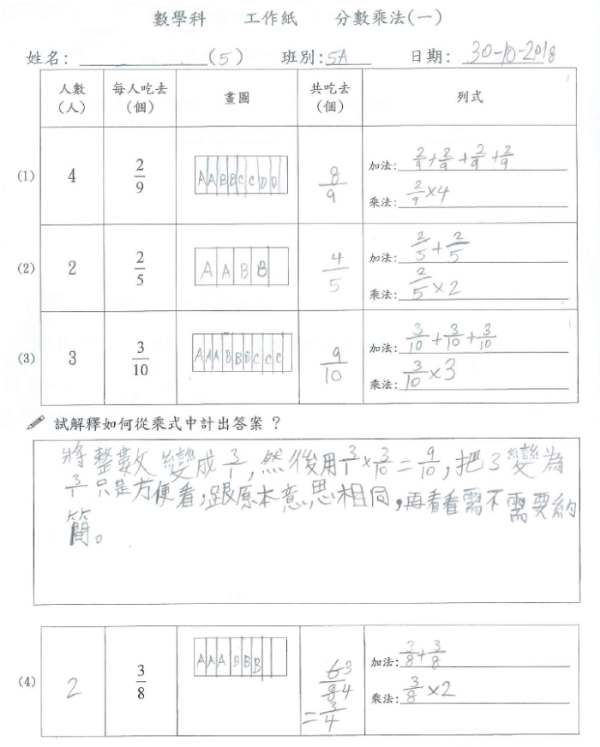 數學科 工作紙 分數乘法(一)
姓名: (5) 班別: 5A 日期: 30-10-2018
人數 (人) 每人吃去 (個) 畫圖 共吃去 (個) 列式
(1) 4 2/9 A A B B C C D D 8/9 加法: 2/9 + 2/9 + 2/9 + 2/9
乘法: 2/9 × 4
(2) 2 2/5 A A B B 4/5 加法: 2/5 + 2/5
乘法: 2/5 × 2
(3) 3 3/10 A A A B B B C C C 9/10 加法: 3/10 + 3/10 + 3/10
乘法: 3/10 × 3
試解釋如何從乘式中計出答案?
將整數變成3/1,然後用3/1×3/10=9/10,把3變為
3/1只是方便看,跟原本意思相同,再看看需不需要約
簡。
(4) 2 3/8 A A A B B B 6/8 3 4 加法: 3/8 + 3/8
= 3/4 乘法: 3/8 × 2